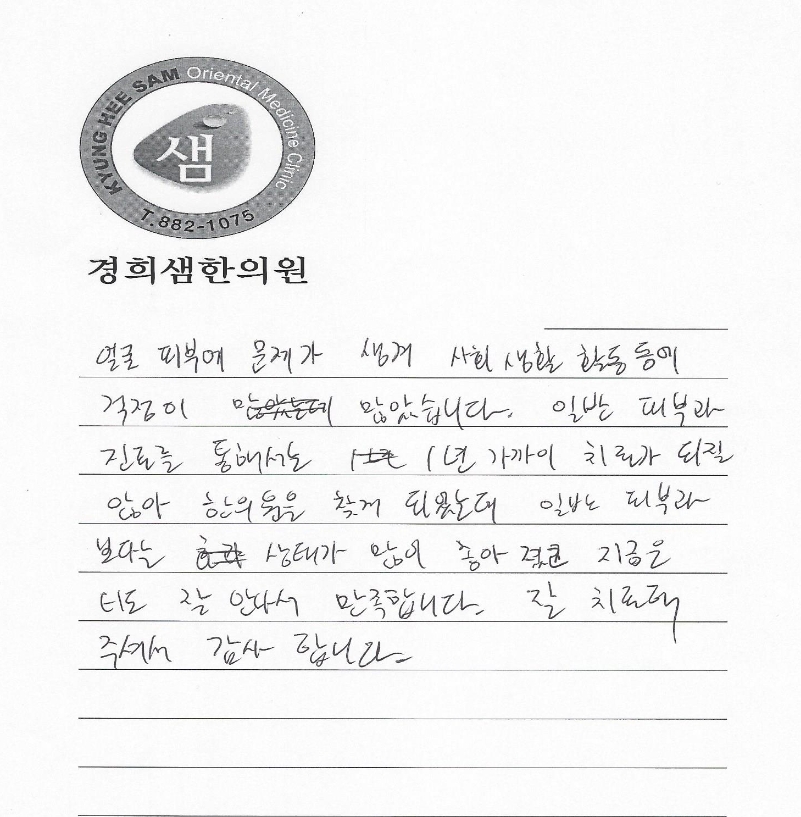 KYUNG HEE SAM Oriental Medicine Clinic
샘
T.882-1075
경희샘한의원
얼굴 피부에 문제가 생겨 사회 생활 활동 등에
걱정이 많았는데 많았습니다. 일반 피부과
진료를 통해서는 1년 1년 가까이 치료가 되질
않아 한의원을 찾게 되었는데 일반 피부과
보다는 상태가 많이 좋아 졌고 지금은
티도 잘 안나서 만족합니다. 잘 치료해
주셔서 감사 합니다.